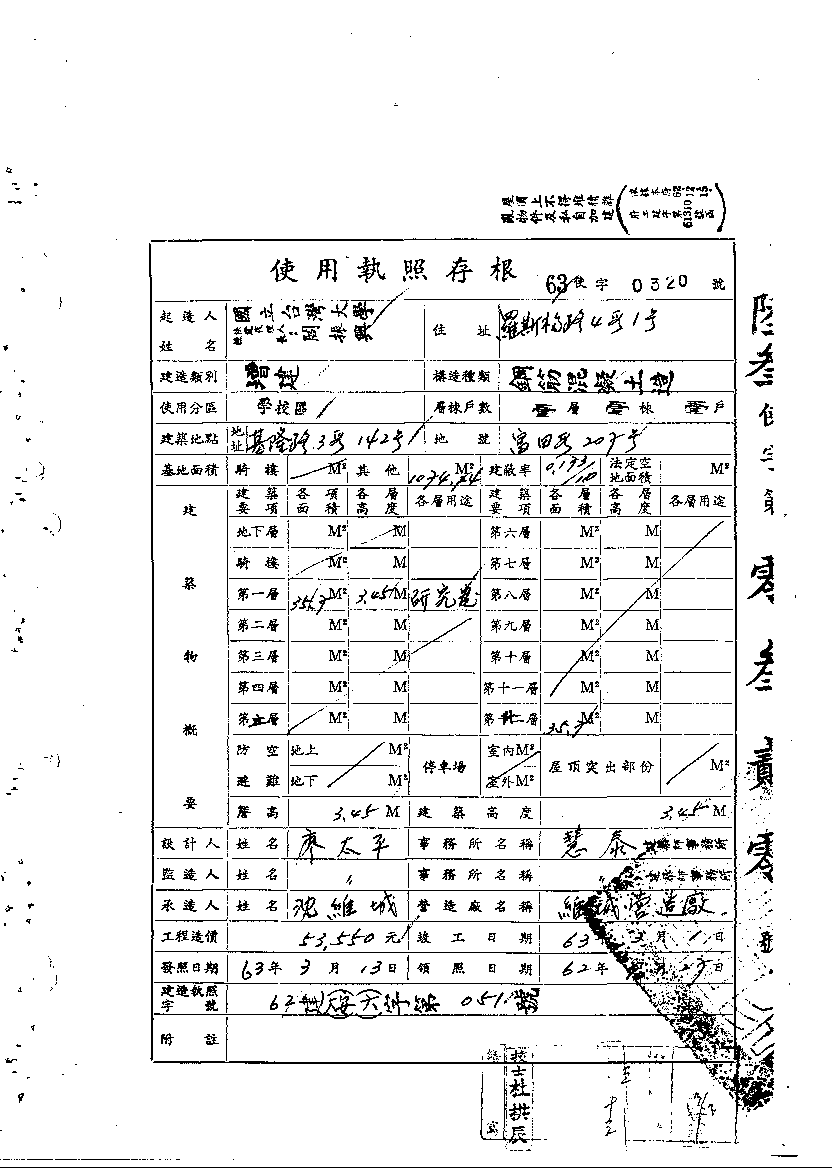 屋頂上不得堆積雜
物件及私自加建
使用執照存根
63使字 0320 號
起造人姓名 國立台灣大學 閻振興 住址 羅斯福路4段1號
建造類別 增建 構造種類 鋼筋混凝土造
使用分區 學校區 層棟戶數 層 棟 戶
建築地點 地址 基隆路3段142號 地號 富田段207號
基地面積 騎樓 M² 其他 1034.44 M² 建蔽率 法定空地面積 M²
建築物概要
建築要項 各項面積 各層高度 各層用途 建築要項 各層面積 各層高度 各層用途
地下層 M² M 第六層 M² M
騎樓 M² M 第七層 M² M
第一層 35.7 M² 3.45 M 研究室 第八層 M² M
第二層 M² M 第九層 M² M
第三層 M² M 第十層 M² M
第四層 M² M 第十一層 M² M
第五層 M² M 35.7 M² M
防空避難 地上 M² 停車場 室內 M² 屋頂突出部份 M²
地下 M² 室外 M²
簷高 3.45 M 建築高度 3.45 M
設計人 姓名 廖太平 事務所名稱 慧泰建築師事務所
監造人 姓名 〃 事務所名稱 〃 建築師事務所
承造人 姓名 沈維城 營造廠名稱 維城營造廠
工程造價 53,550元 竣工日期 63年3月1日
發照日期 63年3月13日 領照日期 62年 月 日
建造執照字號 號
附註
陸叁使字第零叁貳零號
技士杜拱辰